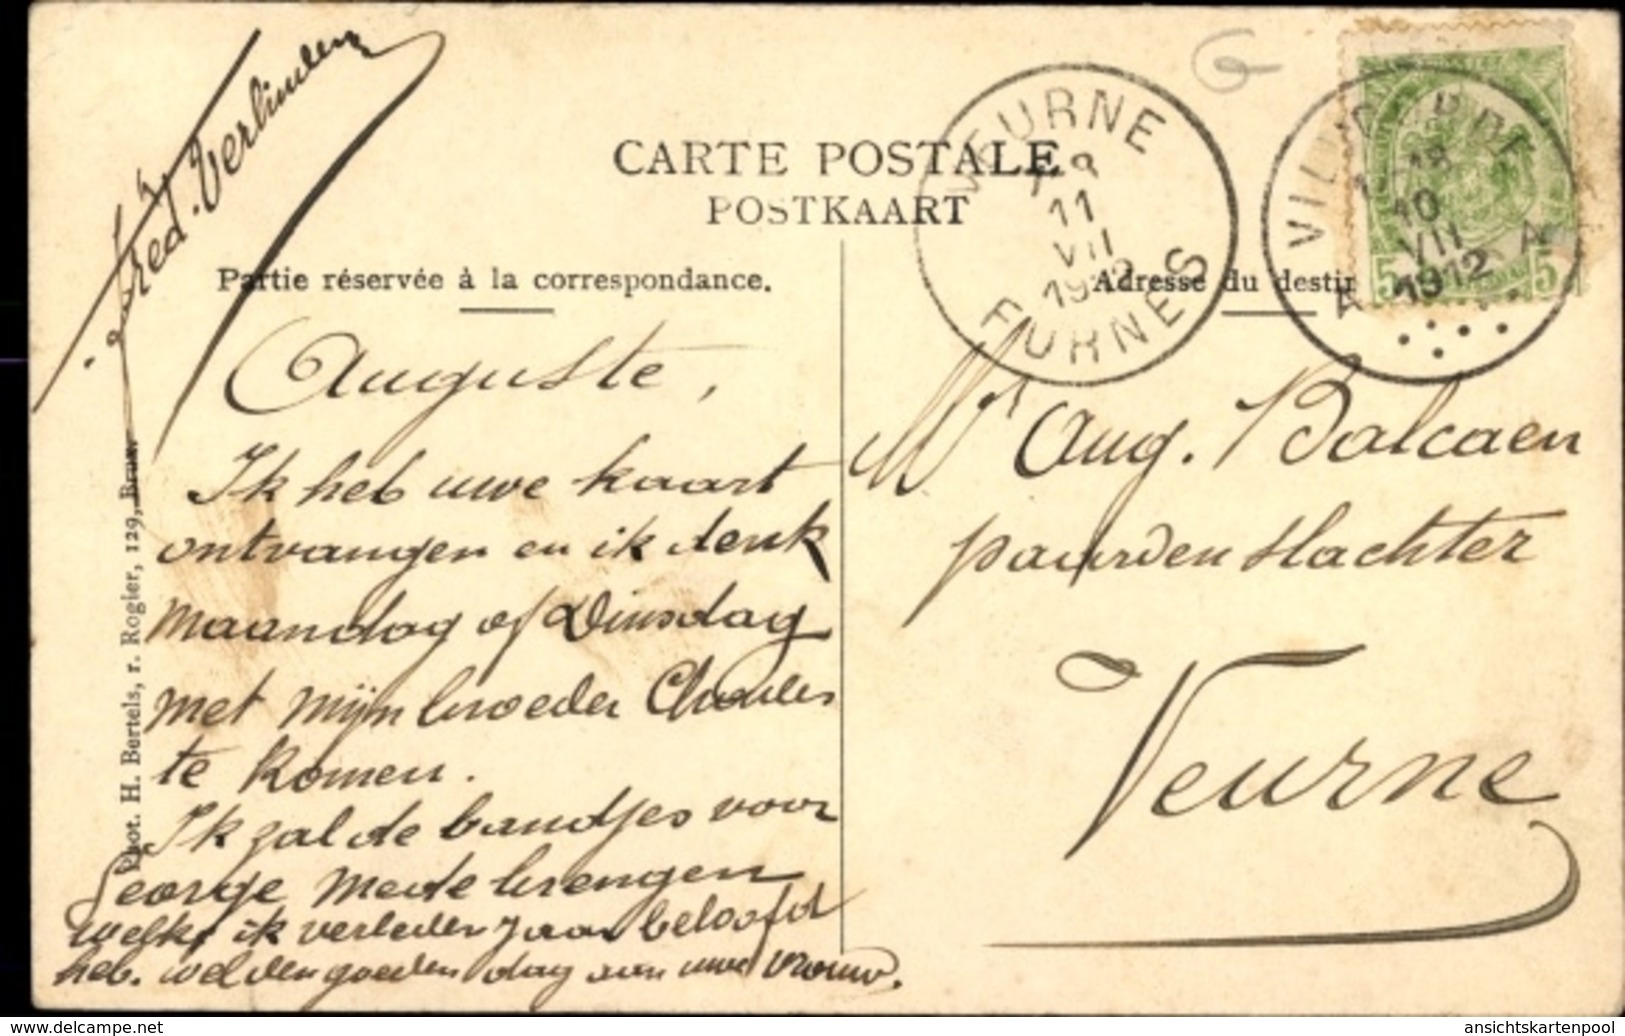 Fred. Verlinden
CARTE POSTALE
POSTKAART
Partie réservée à la correspondance.
Adresse du destin
VEURNE
11
VII
1912
FURNES
VILVORDE
18
10
VII
1912
A A
5 5
Auguste,
Ik heb uwe kaart
ontvangen en ik denk
maandag of Dinsdag
met mijn broeder Charles
te komen.
Ik zal de bandjes voor
George mede brengen
welke ik verleden jaar beloofd
heb. wel den goeden dag aan uwe vrouw.
Mr Aug. Balcaen
paarden slachter
Veurne
Phot. H. Bertels, r. Rogier, 129, Brux.
ansichtskartenpool
www.delcampe.net